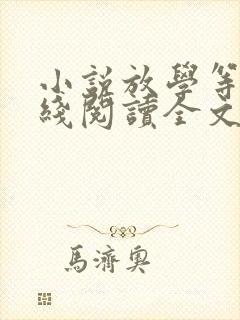 小說放學等
綫閱讀全文
馬濟奧